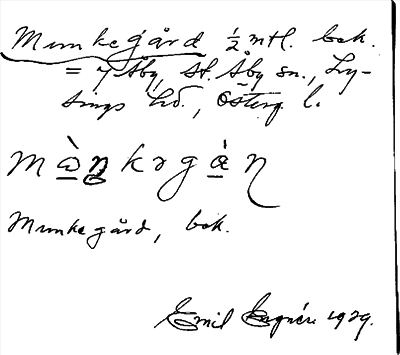 Munkegård ½ mtl. bek.
= 7 Åby, St. Åby sn., Ly-
sings hd., Österg. l.
mὼ̠ŋkrga̠̍ɳ
Munkegård, bek.
Emil 1929.